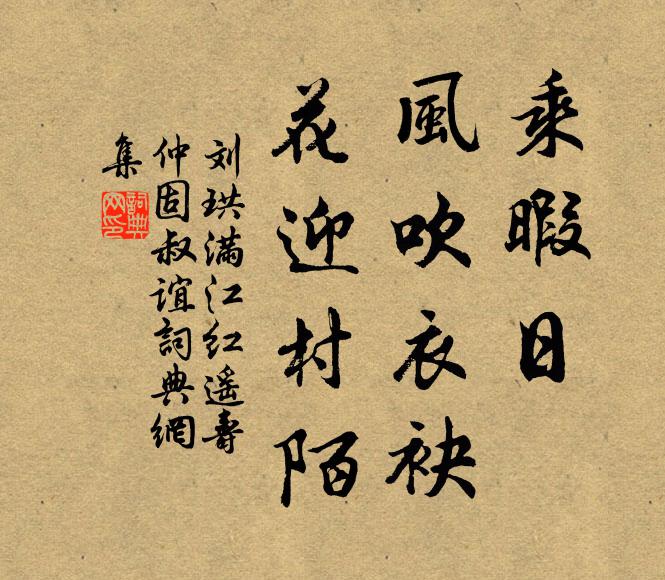 乘暇日
風吹衣袂
花迎村陌
刘珙满江红遥壽
仲固叔誼詞典網
集
詞典网印